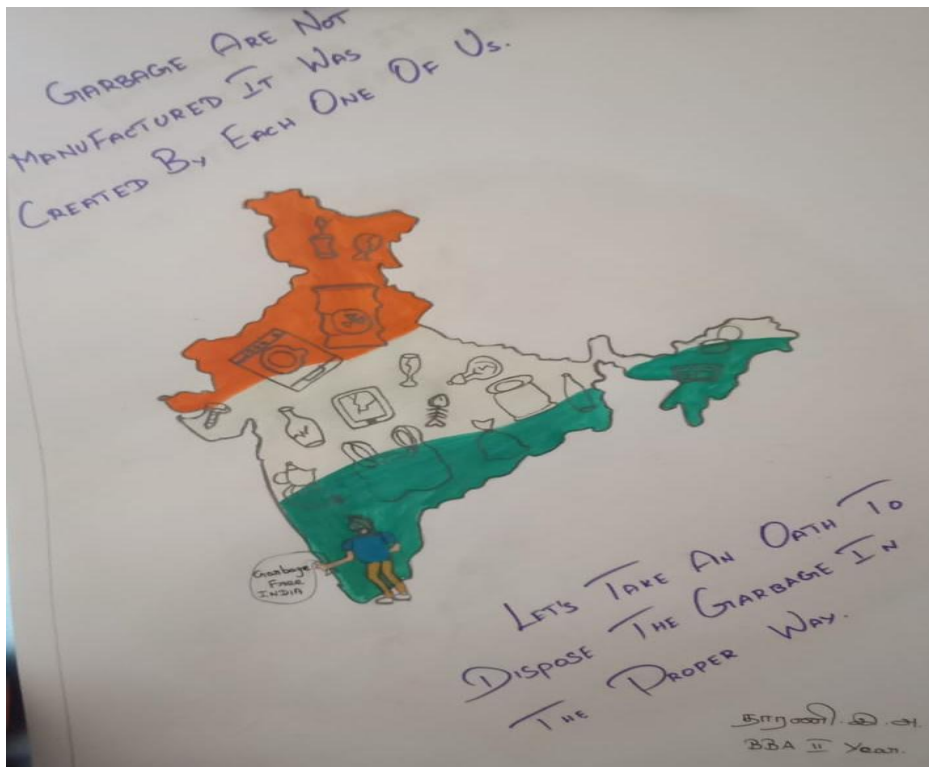 GARBAGE ARE NOT
MANUFACTURED IT WAS
CREATED BY EACH ONE OF US.
Garbage
FREE
INDIA
LET'S TAKE AN OATH TO
DISPOSE THE GARBAGE IN
THE PROPER WAY.
தாரணி. இ. அ.
BBA II Year.